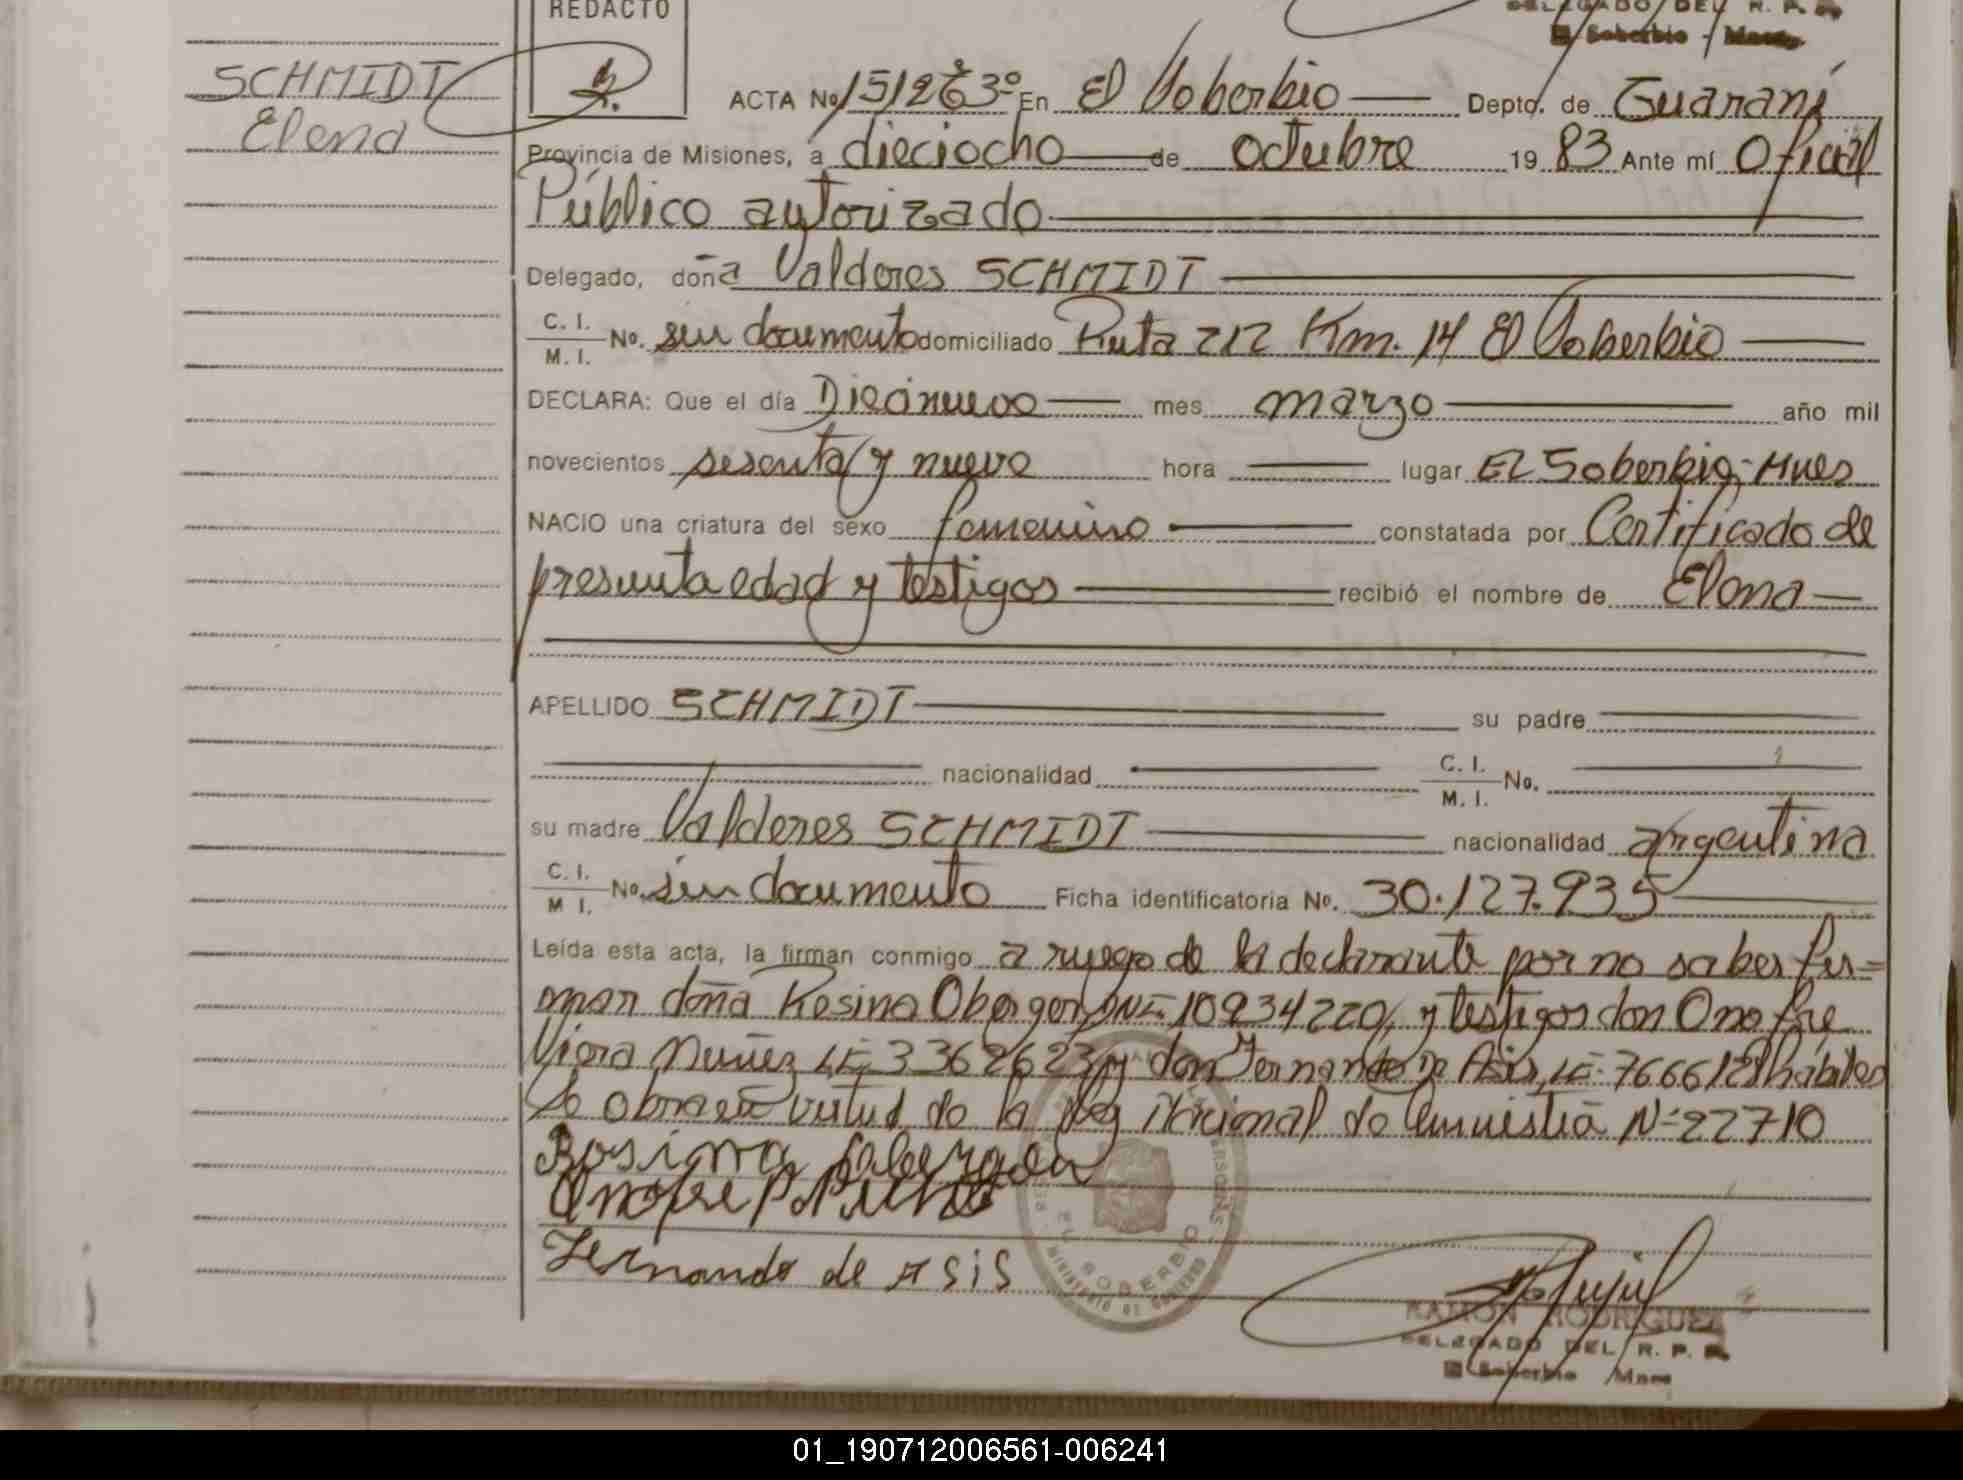 REDACTO
DELEGADO DEL R. P.
El Soberbio - Mnes.
SCHMIDT
Elena
ACTA No 151263º En El Soberbio Depto. de Guaraní
Provincia de Misiones, a dieciocho de octubre 19 83 Ante mí Oficial
Público autorizado
Delegado, doña Valderes SCHMIDT
C. I.
M. I. No. sin documento domiciliado Ruta 212 Km. 14 El Soberbio
DECLARA: Que el día Diecinueve mes marzo año mil
novecientos sesenta y nueve hora lugar El Soberbio-Mnes
NACIO una criatura del sexo femenino constatada por Certificado de
presunta edad y testigos recibió el nombre de Elena
APELLIDO SCHMIDT su padre
nacionalidad C. I.
M. I. No.
su madre Valderes SCHMIDT nacionalidad argentina
C. I.
M I. No. sin documento Ficha identificatoria No. 30.127.935
Leída esta acta, la firman conmigo a ruego de la declarante por no saber fir=
mar doña Rosina Oberger DNI-10934220, y testigos don Onofre
Viera Nuñez LE 3362623 y don Fernando De Asis, LE-7666128 hábiles
Se obra en virtud de la Ley Nacional de Amnistia Nº 22710
Rosina
Onofre
Fernando de Asis
EL SOBERBIO
MINISTERIO DE GOBIERNO
RAMON RODRIGUEZ
DELEGADO DEL R. P.
El Soberbio Mnes
01_190712006561-006241